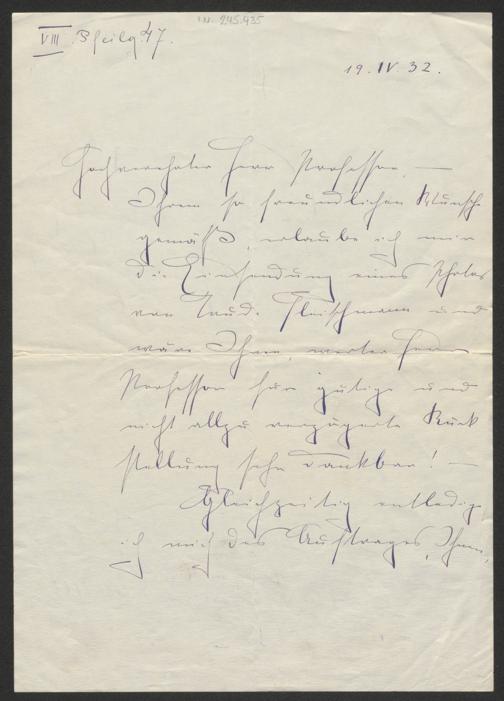 I.N. 245.435
VIII. Pfeilg 47.
19. IV. 32.
Hochverehrter Herr Professor, —
Ihrem so freundlichen Wunsche
gemäß, erlaube ich mir
die Einsendung eines Photos
von Trud. Fleischmann und
wäre Ihnen, werter Herr
Professor für gütige und
nicht allzu verzögerte Rück
stellung sehr dankbar! —
Gleichzeitig entledige
ich mich des Auftrages, Ihnen,